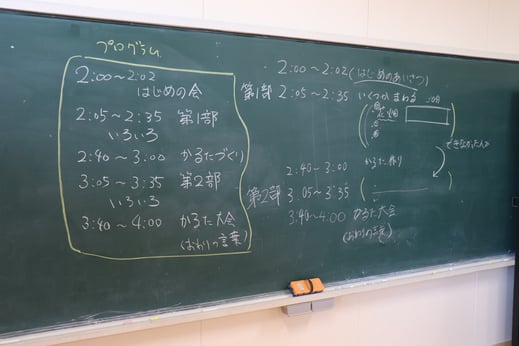 プログラム
2:00～2:02
はじめの会
2:05～2:35 第1部
いろいろ
2:40～3:00 かるたづくり
3:05～3:35 第2部
いろいろ
3:40～4:00 かるた大会
(おわりの言葉)
2:00～2:02(はじめのあいさつ)
第1部 2:05～2:35 いくつかまわる
2:40～3:00 かるた作り
第2部 3:05～3:35
3:40～4:00 かるた大会
(おわりの言葉)